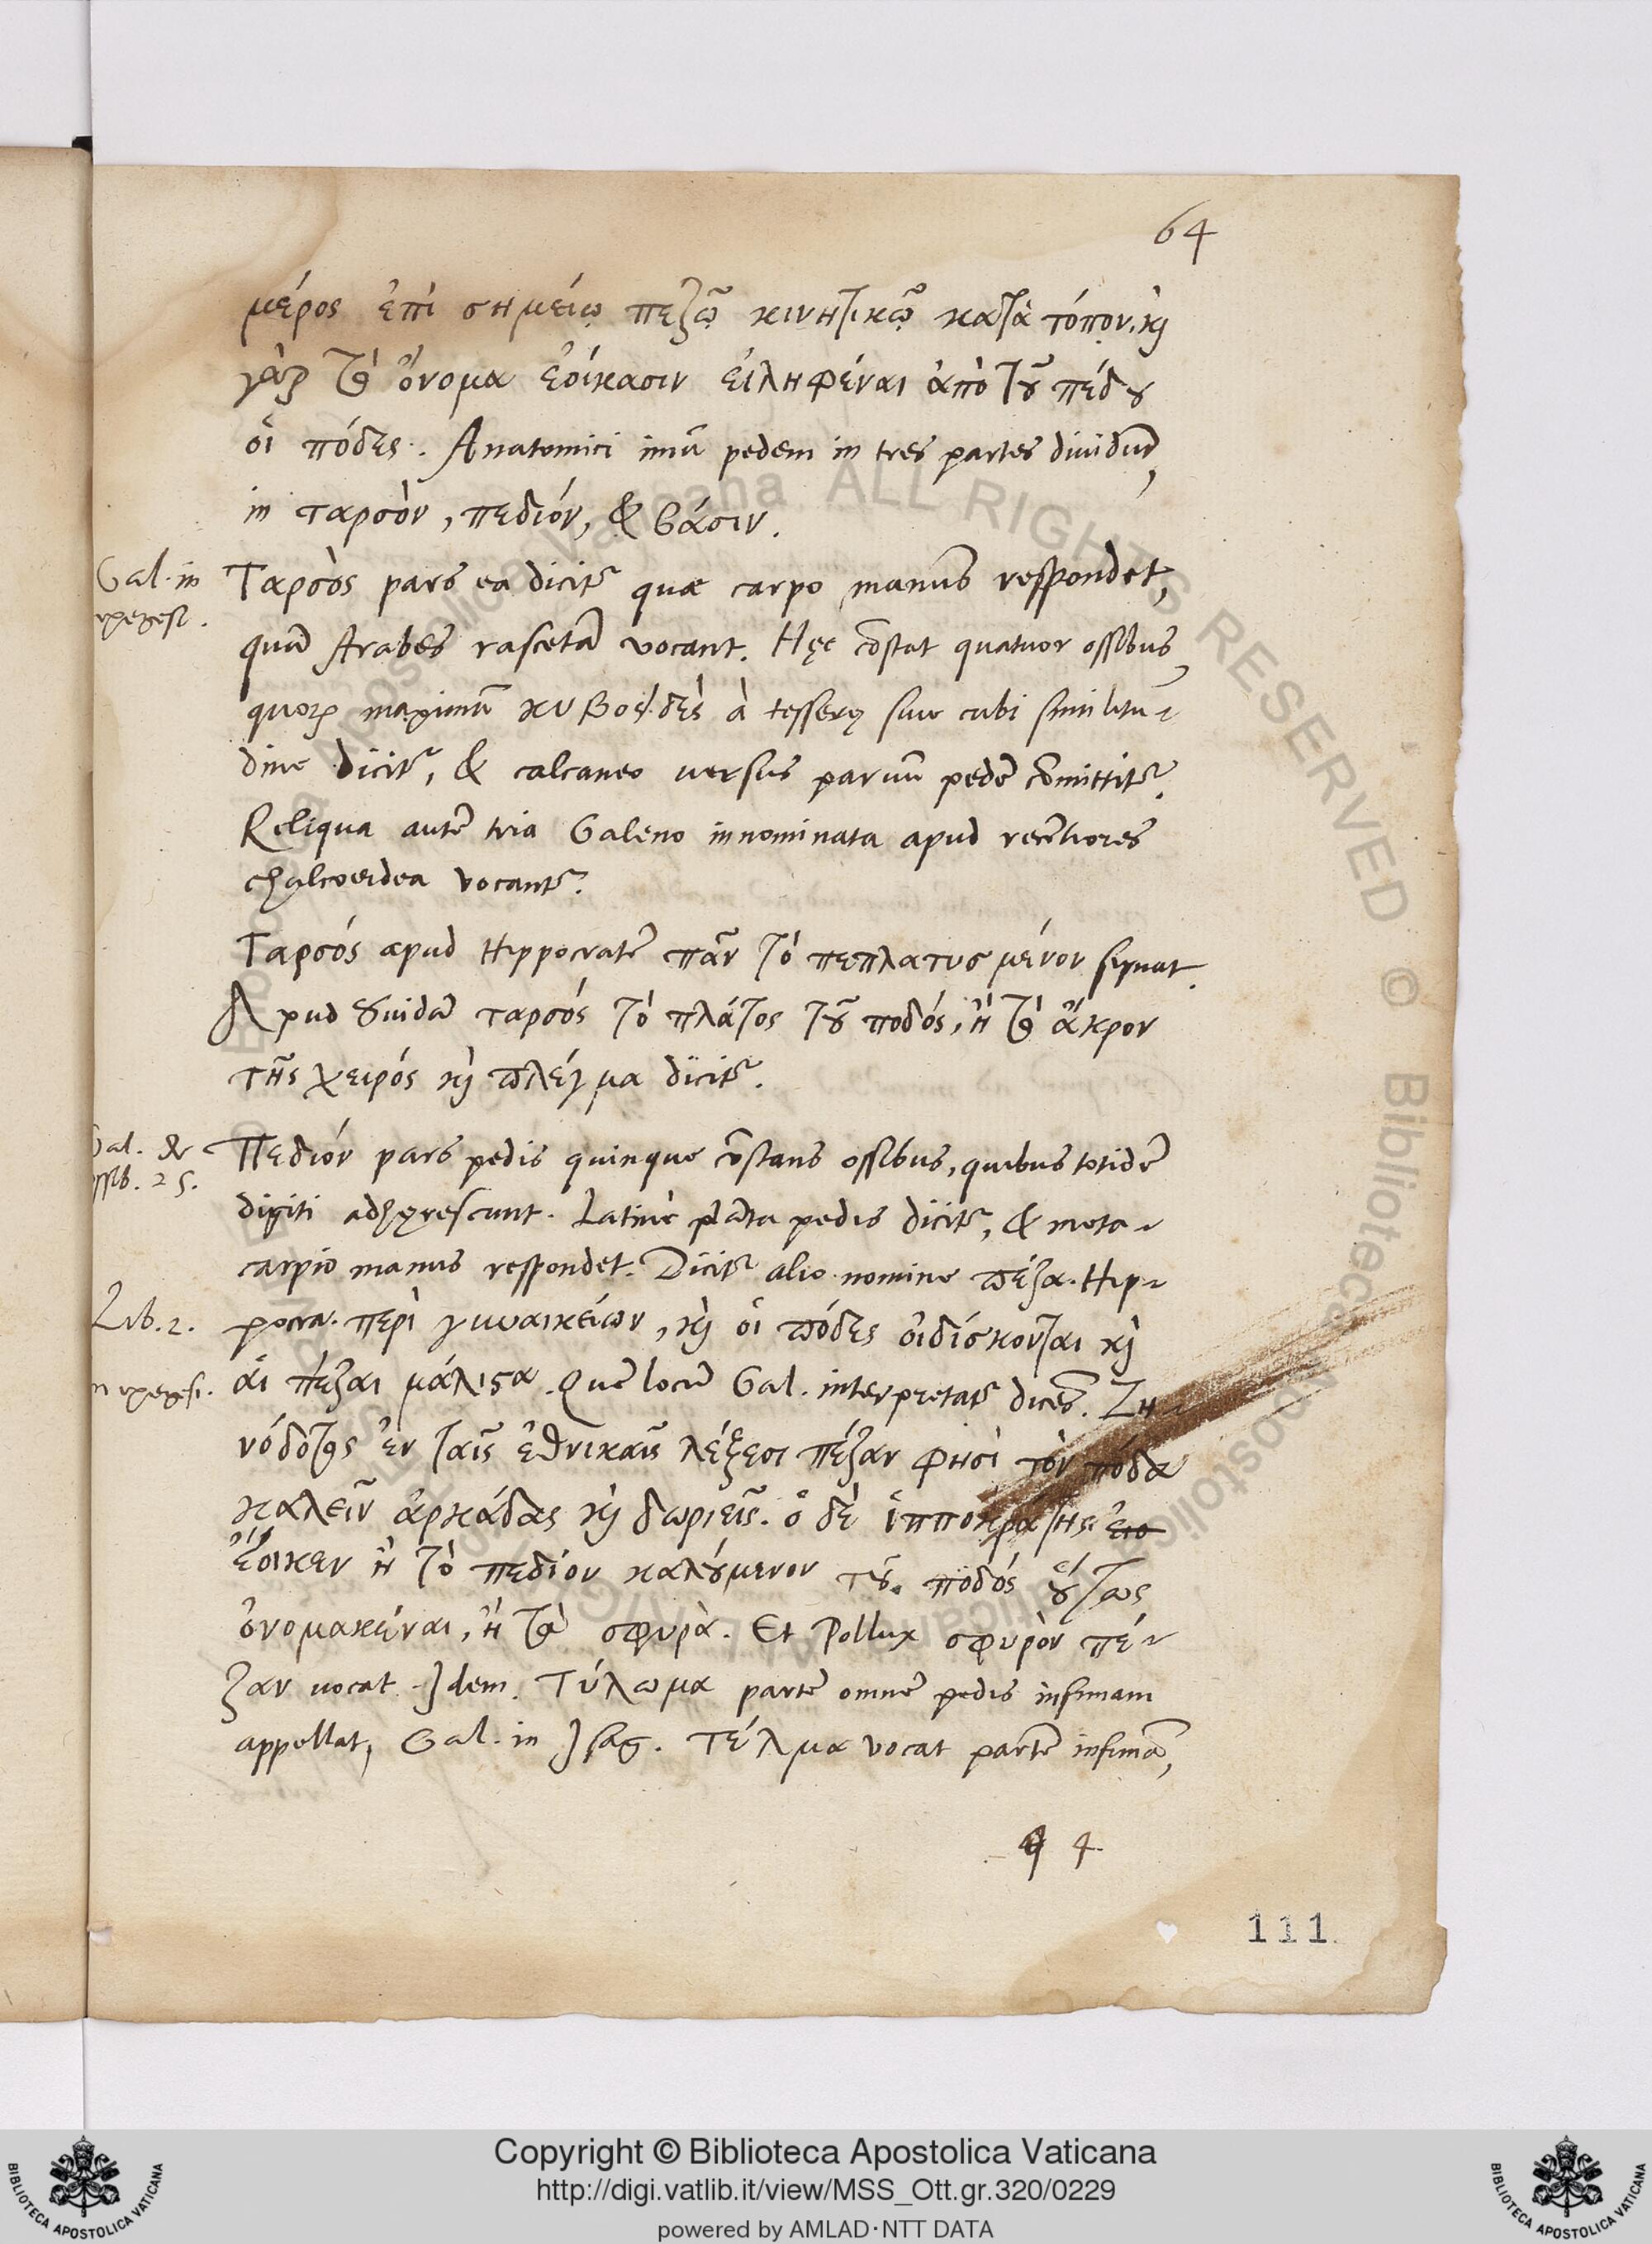 64
μέρος ἐπὶ σημείῳ πεζῷ κινητικῷ κατὰ τόπον. κὶ
γὰρ τὸ ὄνομα ἐοίκασιν εἰληφέναι ἀπὸ τοῦ πέδου
οἱ πόδες. Anatomici imū pedem in tres partes diuidūt,
in ταρσὸν, πεδιόν, & βάσιν.
Gal. in
exegesi.
Ταρσὸς pars ea dicitr quae carpo manus respondet,
quā Arabes rascetā vocant. Hęc cōstat quatuor ossibus,
quorꝫ maximū κυβοειδὲς à tesserę siue cubi similitu-
dine dicitr, & calcaneo uersus paruū pedē cōmittitr.
Reliqua autē tria Galeno innominata apud recētiores
chalcoeidea vocantr.
Ταρσός apud Hippocratē πᾶν τό πεπλατυσμένον signat.
Apud Suidā ταρσός τό πλάτος τοῦ ποδός, ἢ τὸ ἄκρον
τῆς χειρός κὶ πλέγμα dicitr.
Gal. de
ossib. 25.
Πεδιόν pars pedis quinque cōstans ossibus, quibus totidē
digiti adhęrescunt. Latinè plāta pedis dicitr, & meta-
carpio manus respondet. Dicitr alio nomine πέζα. Hip-
Lib. 2.
pocra. περὶ γυναικείων, κὶ οἱ πόδες οἰδίσκονται κὶ
in exegesi.
αἱ πέζαι μάλιστα. Quē locū Gal. interpretatr dicēs. Ζη-
νόδοτος ἐν ταῖς ἐθνικαῖς λέξεσι πέζαν φησὶ τὸν πόδα
καλεῖν ἀρκάδας κὶ δωριεῖς. ὁ δὲ ἱπποκράτης εἰο
ἔοικεν ἢ τὸ πεδίον καλούμενον τοῦ ποδός οὕτως
ὀνομακέναι, ἢ τὰ σφυρὰ. Et Pollux σφυρὸν πέ-
ζαν uocat. Idem. Τύλωμα partē omnē pedis infimam
appellat, Gal. in Isag. Τέλμα vocat partē infimā,
q 4.
111
Copyright © Biblioteca Apostolica Vaticana
http://digi.vatlib.it/view/MSS_Ott.gr.320/0229
powered by AMLAD·NTT DATA